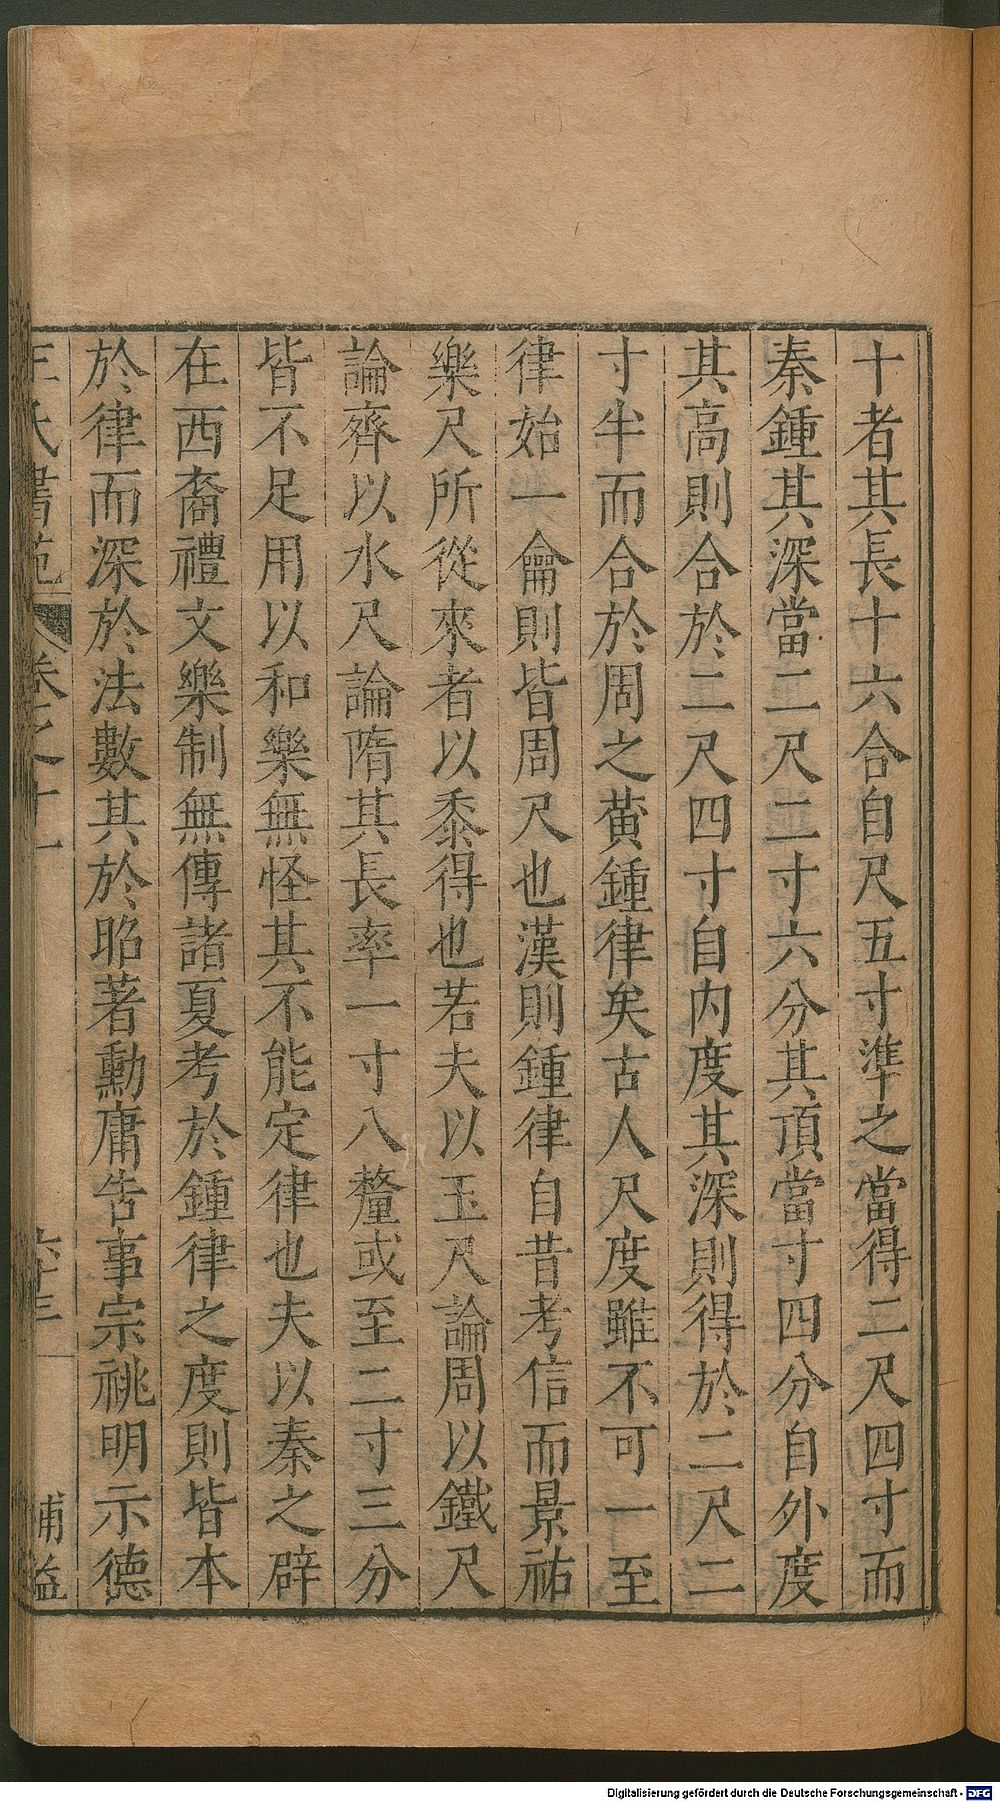 十者其長十六合自尺五寸準之當得二尺四寸而
秦鍾其深當二尺二寸六分其頂當寸四分自外度
其高則合於二尺四寸自内度其深則得於二尺二
寸半而合於周之黄鍾律矣古人尺度雖不可一至
律始一龠則皆周尺也漢則鍾律自昔考信而景祐
樂尺所從來者以黍得也若夫以玉尺論周以鐵尺
論齊以水尺論隋其長率一寸八釐或至二寸三分
皆不足用以和樂無怪其不能定律也夫以秦之辟
在西裔禮文樂制無傳諸夏考於鍾律之度則皆本
於律而深於法數其於昭著勳庸告事宗祧明示德
王氏書苑 卷之十一 六十三 補益
Digitalisierung gefördert durch die Deutsche Forschungsgemeinschaft - DFG